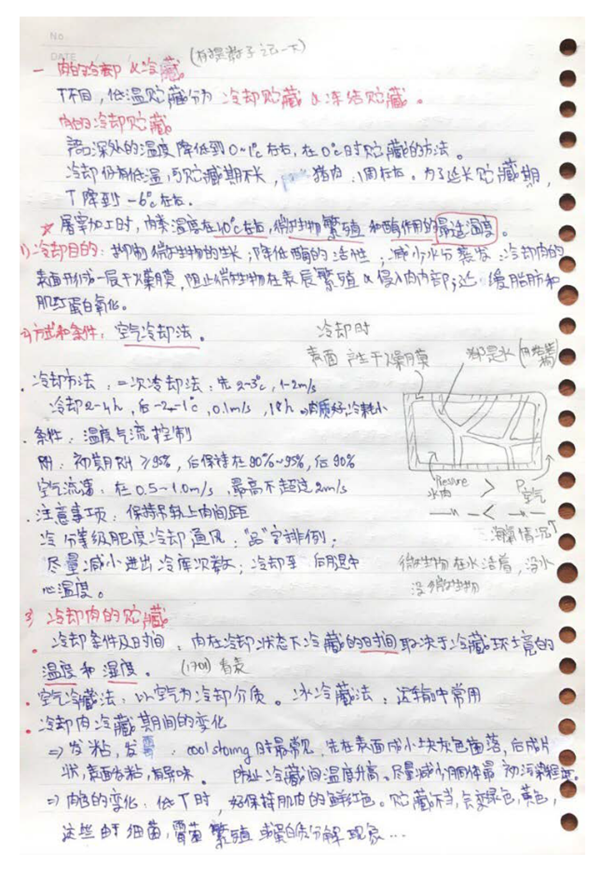 No.
DATE
一 肉的冷却 & 冷藏 (有提数字记一下)
T不同，低温贮藏分为 冷却贮藏 & 冻结贮藏。
肉的冷却贮藏
深处的温度降低到0~1℃左右，在0℃时贮藏的方法。
冷却 低温 贮藏期不长， 猪肉 1周左右。为了延长贮藏期，
T降到 -6℃左右。
※ 屠宰加工时，肉 温度在40℃左右，微生物繁殖和酶作用的最适温度。
1) 冷却目的：抑制微生物的生长；降低酶的活性；减少水分蒸发；冷却肉的
表面形成一层干燥膜，阻止微生物在表层繁殖 & 侵入肉内部；延缓脂肪和
肌红蛋白氧化。
2) 方式和条件：空气冷却法。
冷却时
表面产生干燥膜 冰
· 冷却方法：二次冷却法：先 2~3℃，1~2m/s
冷却2~4h，后 -2~-1℃，0.1m/s，18h 肉质好冷耗小
· 条件：温度气流控制
RH：初期RH≥95%，后保持在90%~95%，低90%
空气流速：在0.5~1.0m/s，最高不超过2m/s
Pressure 水肉 > P空气
· 注意事项：保持吊轨上肉间距
冷 分等级肥度冷却 通风："品"字排例；
尽量减小进出冷库次数；冷却至 后腿中
心温度。
情况↑
微生物在水活着，没水
没 微生物
3) 冷却肉的贮藏
· 冷却条件及时间：肉在冷却状态下冷藏的时间取决于冷藏环境的
温度和湿度。 (170页) 看表
· 空气冷藏法：以空气为冷却介质。冰冷藏法：运输中常用
· 冷却肉冷藏期间的变化
⇒ 发粘，发霉： 时最常见，先在表面成小块灰色菌落，后成片
状，表面发粘，有异味。 防止冷藏间温度升高。尽量减少胴体最初污染程度
⇒ 肉色的变化：低T时，好保持肌肉的鲜红色。贮藏不当，会变绿色，黄色，
这些由于细菌，霉菌繁殖 或蛋白质分解现象…